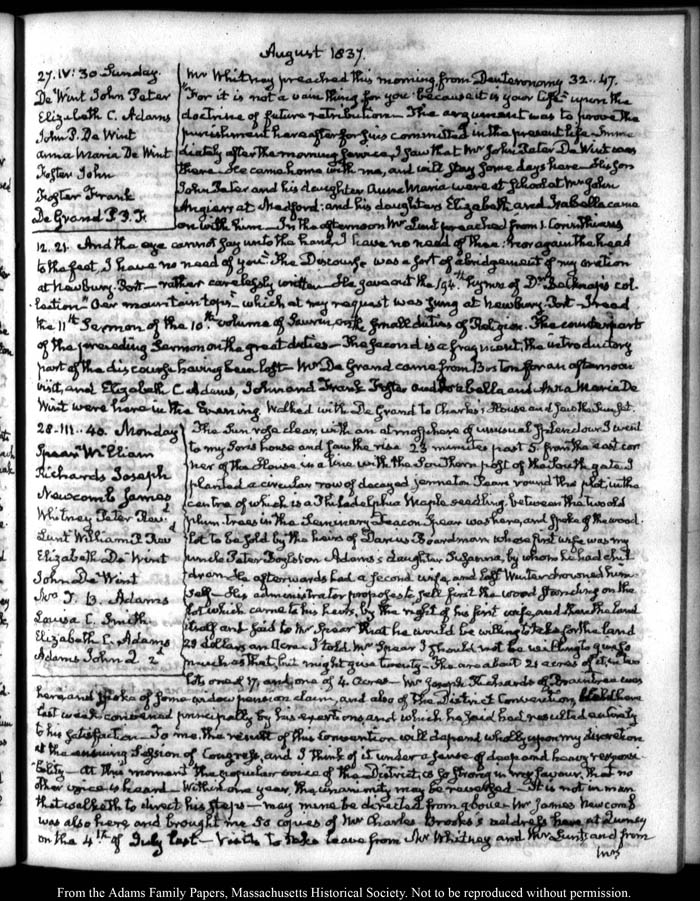 August 1837.
27. IV: 30 Sunday.
De Wint John Peter
Elizabeth C. Adams
John P. De Wint
Anna Maria De Wint
Foster John
Foster Frank
De Grand P. B. F.
Mr Whitney preached this morning from Deuteronomy 32. 47.
"For it is not a vain thing for you because it is your life" upon the
doctrine of future retribution — The argument was to prove the
punishment hereafter for sins committed in the present life — Imme
diately after the morning service, I saw that Mr John Peter De Wint was
there — He came home with me, and will stay some days here — His son
John Peter and his daughter Anna Maria were at School at Mr John
Angiers at Medford; and his daughters Elizabeth and Isabella came
on with him — In the afternoon Mr Lunt preached from 1. Corinthians
12. 21. And the eye cannot say unto the hand, I have no need of thee: nor again the head
to the feet, I have no need of you. The Discourse was a sort of abridgement of my oration
at Newbury-Port — rather carelessly written — He gave out the 194th hymn of Dr Belknaps col-
lection "Our mountain tops" which at my request was sung at Newbury-Port — I read
the 11th Sermon of the 10th volume of Saurin, on the small duties of Religion. The counterpart
of the preceding Sermon on the great duties — The second is a fragment, the introductory
part of the discourse having been lost — Mr De Grand came from Boston for an afternoon
visit, and Elizabeth C. Adams, John and Frank Foster and Isabella and Anna Maria De
Wint were here in the Evening. Walked with De Grand to Charles's House and saw the Sun set.
28. III. 40. Monday
Spear William
Richards Joseph
Newcomb James
Whitney Peter Revd
Lunt William P. Revd
Elizabeth De Wint
John De Wint
Mrs T. B. Adams
Louisa C. Smith
Elizabeth C. Adams
Adams John Q. 2d
The Sun rose clear, with an atmosphere of unusual splendour I went
to my Son's house and saw the rise 23 minutes past 5. from the east cor
ner of the House in a line with the Southern post of the South gate. I
planted a circular row of decayed Jennetin Pears round the plot, in the
centre of which is a Philadelphia Maple seedling, between the two old
plum-trees in the Seminary Deacon Spear was here, and spoke of the wood
lot to be sold by the heirs of Darius Boardman whose first wife was my
uncle Peter Boylston Adams's daughter Susanna, by whom he had chil
dren — He afterwards had a second wife, and last Winter drowned him
self — His administrator proposes to sell first the wood standing on the
lot which came to his heirs, by the right of his first wife, and then the land
itself and said to Mr Spear that he would be willing to take for the land
29 dollars an Acre. I told Mr Spear I should not be willing to give so
much as that, but might give twenty — There are about 21 acres of it in two
lots one of 17, and one of 4 Acres — Mr Joseph Richards of Braintree was
here and spoke of some widow pension claim, and also of the District Convention, held here
last week convened principally by his exertions and which he said had resulted entirely
to his satisfaction. To me, the result of this Convention will depend wholly upon my discretion
at the ensuing Session of Congress, and I think of it under a sense of deep and heavy responsi
bility — At this moment the popular voice of the District, is so strong in my favour, that no
other voice is heard — Within one year, the unanimity may be reversed — It is not in man
that walketh to direct his steps — may mine be directed from above — Mr James Newcomb
was also here and brought me 50 copies of Mr Charles Brooks's address here at Quincy
on the 4th of July last — Visits to take leave from Mr Whitney and Mr Lunt and from
Mrs
From the Adams Family Papers, Massachusetts Historical Society. Not to be reproduced without permission.